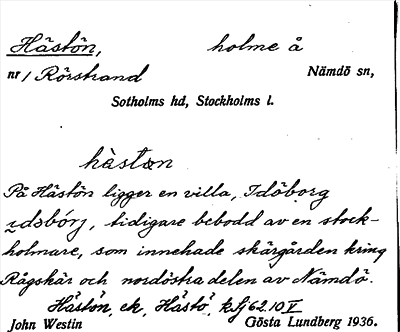 Hästön, holme å
nr 1 Rörstrand Nämdö sn,
Sotholms hd, Stockholms l.
hàstɵn
På Hästön ligger en villa, Idöborg
i̯dsbórj, tidigare bebodd av en stock-
holmare, som innehade skärgården kring
Rågskär och nordöstra delen av Nämdö.
Hästön, ek, Hästö,
John Westin Gösta Lundberg 1936.